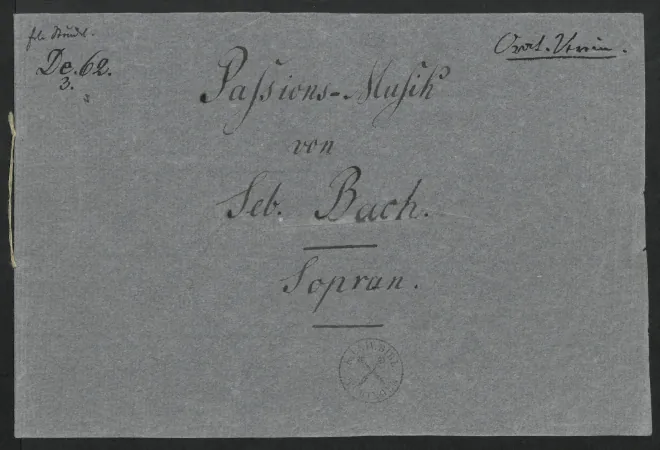 De. 62.
3.
Orat. Verein.
Paſsions-Muſik
von
Seb. Bach.
Sopran.